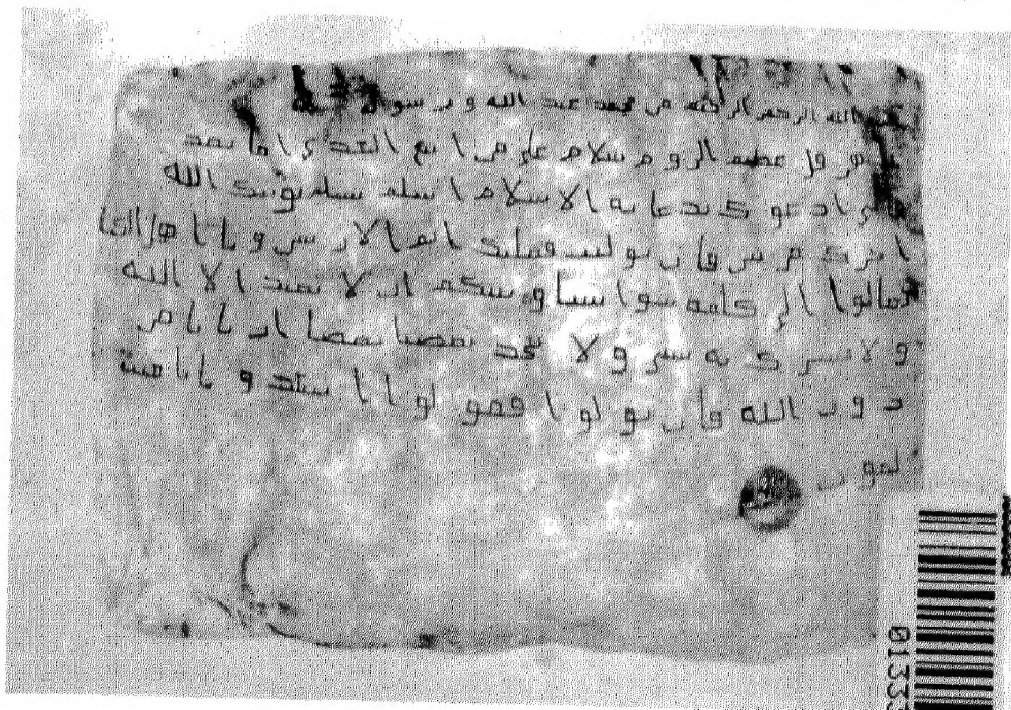 الله الرحمن الرحيم من محمد عبد الله و رسوله
هرقل عظيم الروم سلام على من اتبع الهدى اما بعد
فانى ادعوك بدعاية الاسلام اسلم تسلم يوتك الله
اجرك مرتين فان توليت فعليك اثم الاريسين و يا اهل الكتا
تعالوا الى كلمة سوا بيننا وبينكم ان لا نعبد الا الله
ولا نشرك به شى و لا يتخذ بعضنا بعضا اربابا من
دون الله فان تولوا فقولوا ا
لمون
01333